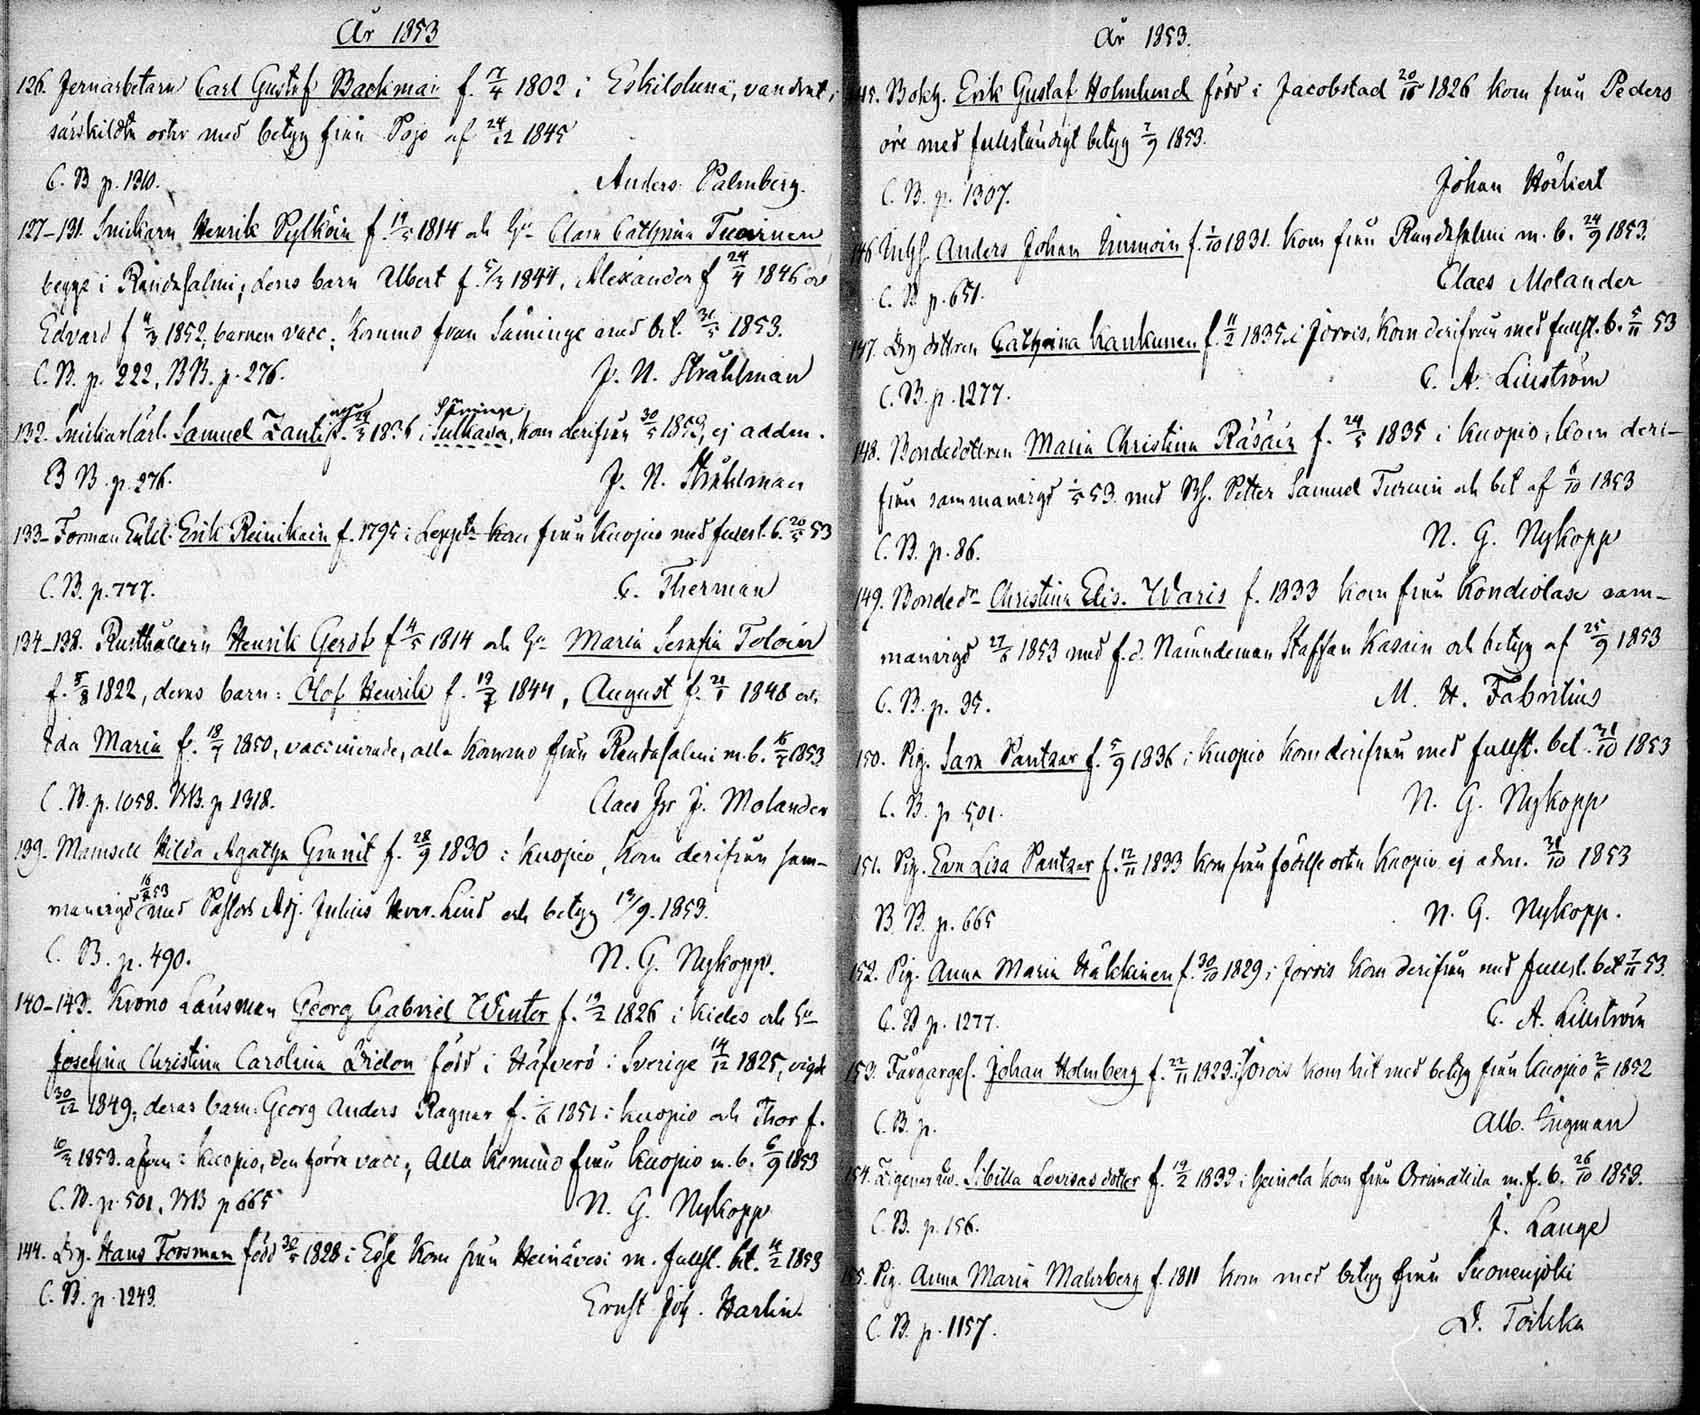 År 1853
126. Jernarbetarn Carl Gustaf Backman f. 17/4 1802 i Eskilstuna, vandrat i
särskildta orter med betyg från Pojo af 24/12 1845
C. B. p. 1310. Anders Palmberg.
127–131. Snickarn Henrik Pylköin f. 19/5 1814 och Hu Clara Cathrina Tuovinen
begge i Randasalmi, deras barn Albert f. 5/3 1844, Alexander f 24/4 1846 och
Edvard f 4/3 1852, barnen vacc. komma från Säminge med bet. 31/5 1853.
C. B. p. 222, BB. p. 276. J. N. Stråhlman
132. Snickarlärl. Samuel f. 24/3 1836 i Sulkava, Säminge kom derifrån 30/5 1853, ej adm.
B B. p. 276. J. N. Stråhlman
133– Forman Enkl. Erik Reinikain f. 1795 i Leppl:a kom från Kuopio med fulst. b. 20/5 53
C. B. p. 777. C. Therman
134–138. Rusthållarn Henrik Geröb f 4/5 1814 och Hu Maria Serafia Toloin
f. 5/8 1822, deras barn: Olof Henrik f. 19/7 1844, August f. 21/1 1848 och
Ida Maria f. 18/4 1850, vaccinerade, alla komma från Randasalmi m. b. 15/7 1853
C. B. p. 1058. BB. p 1318. Claes Gr J. Molander
139. Mamsell Hilda Agatha Granit f. 28/9 1830 i Kuopio, kom derifrån sam-
manvigd 16/8 53 med Pastors Adj. Julius Lind och betyg 13/9. 1853.
C. B. p. 490. N. G. Nykopp.
140–143. Krono Länsman Georg Gabriel Winter f. 19/2 1826 i Kides och Hu
Josefina Christina Carolina Bridon född i Häfverö i Sverige 14/12 1825, vigde
30/12 1849, deras barn: Georg Anders Ragnar f. 1/6 1851 i Kuopio och Thor f.
10/3 1853. äfven i Kuopio, den förra vacc., Alla komma från Kuopio m. b. 6/9 1853
C. B. p. 501, BB p 665 N. G. Nykopp
144. Drg. Hans Forsman född 30/5 1828 i Esse kom från Heinävesi m. fullst. bet. 4/2 1853
C. B. p. 1243. Ernst Joh. Harlin.
År 1853.
145. Bokh. Erik Gustaf Holmlund född i Jacobstad 20/10 1826 kom från Peders
öre med fullständigt betyg 7/9 1853.
C. B. p. 1307. Johan Hörliert
146 Anders Johan Immoin f. 1/10 1831. kom från Randasalmi m. b. 24/9 1853.
C. B p. 651. Claes Molander
147. Drg dottren Cathrina Kankunen f. 11/2 1835 i Jorois, kom derifrån med fullst. b. 5/11 53
C. B. p. 1277. C. A. Lillström
148. Bondedottren Maria Christina Räsäin f. 24/5 1835 i Kuopio, kom deri-
från sammanvigd 1/5 53 med Petter Samuel Turuin och bet af 6/10 1853
C. B. p. 86. N. G. Nykopp
149. Bonded:r Christina Elis. Waris f. 1833 kom från Kondiolax sam-
manvigd 27/6 1853 med f.d. Nämndeman Staffan Kasain och betyg af 25/9 1853
C. B. p. 35. M. H. Fabritius
150. Pig. Sara Pantzar f. 5/9 1836 i Kuopio kom derifrån med fullst. bet. 31/10 1853
C. B. p. 501. N. G. Nykopp
151. Pig. Eva Lisa Pantzar f. 12/11 1833 kom från födelse orten Kuopio ej adm. 31/10 1853
B B. p. 665 N. G. Nykopp.
152. Pig. Anna Maria Häkkinen f. 30/10 1829 i Jorois kom derifrån med fullst. bet 7/11 53.
C. B p. 1277. C. A. Lillström
153. Färgarges. Johan Holmberg f. 22/11 1823 i Jorois kom hit med betyg från Kuopio 2/6 1852
C. B. p. Alb. Ingman
154. Zigenar Sibilla Lovisas dotter f. 19/2 1832 i Heinola kom från Orrimattila m. f. b. 26/10 1853.
C. B. p. 156. J. Lange
155. Pig. Anna Maria Mahrberg f. 1811 kom med betyg från Suonenjoki
C. B. p. 1157. D. Toikka